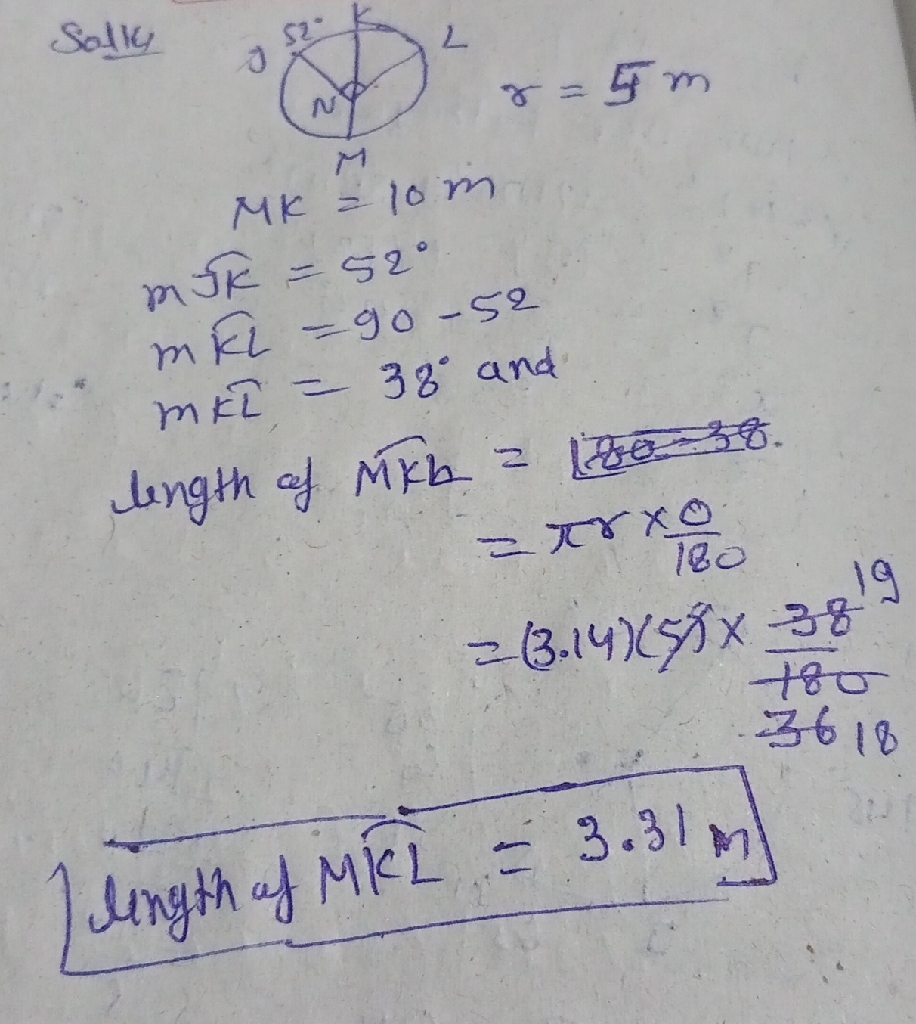 Solk
52° K
J L
N r = 5 m
M
MK = 10 m
m JK = 52°
m KL = 90 - 52
m KL = 38° and
length of MKL = 180 - 38.
= πr × θ/180
= (3.14)(5) × 38/180 19
36 18
length of MKL = 3.31 m